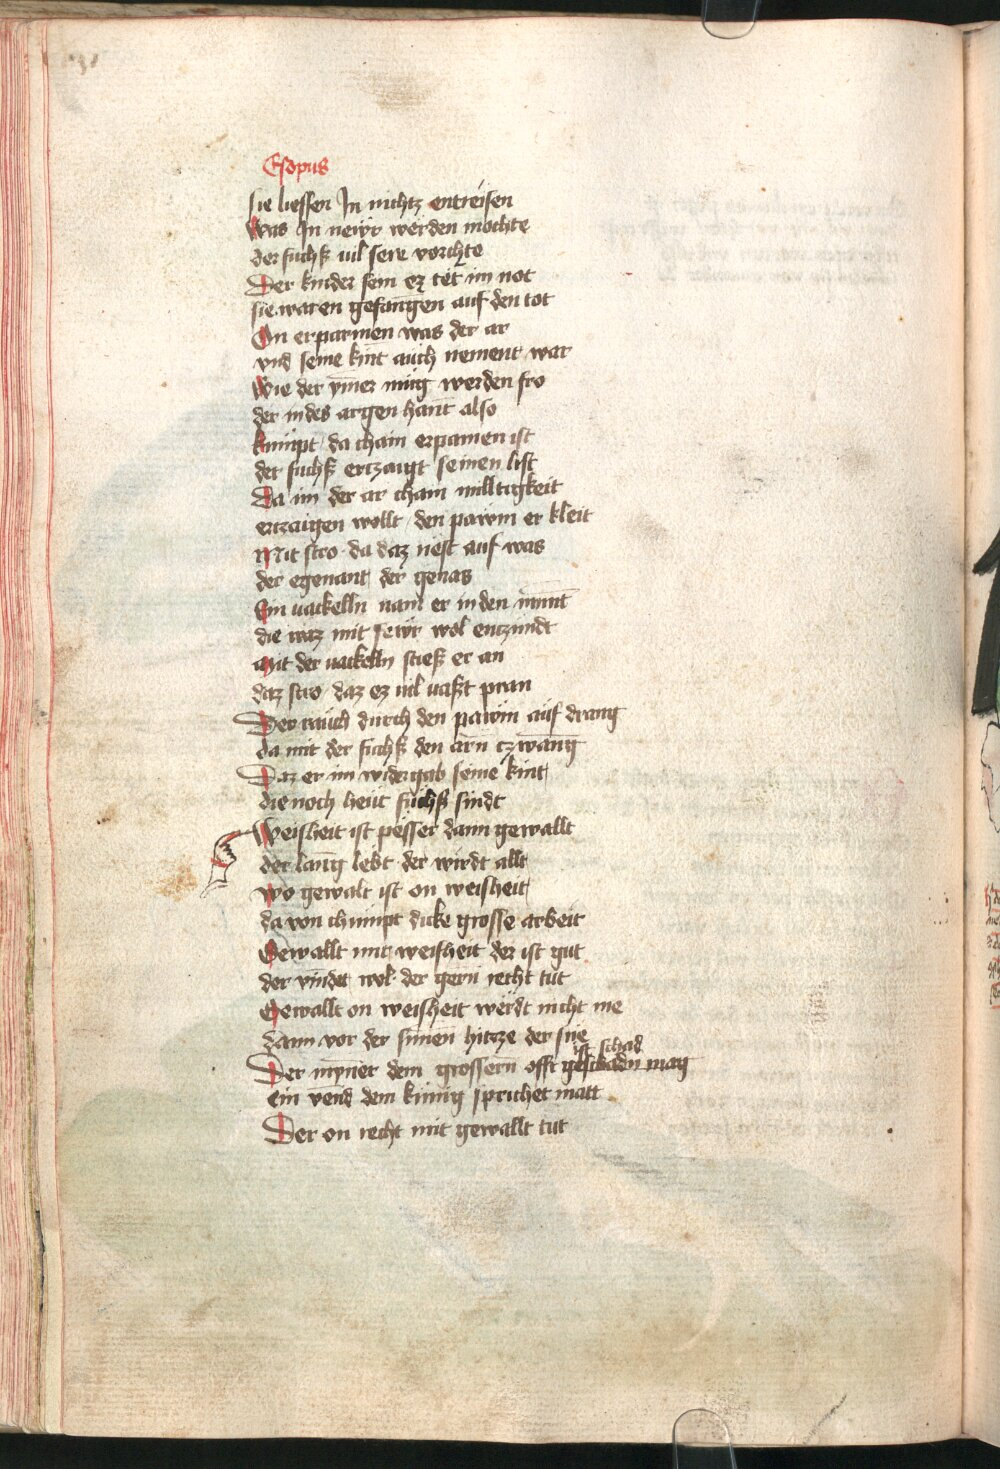 Esopus
sie liessen In nichtz entreisen
Was In newr werden mochte
der fuchß vil sere vorchte
Der kinder sein ez tet im not
sie waren gefangen auf den tot
On erparmen was der ar
vnd seine kint auch nement war
Wie der ymer müg werden fro
der in des argen hant also
kumpt da chain erpamen ist
der fuchß ertzaigt seinen list
Da im der ar chain milltigkeit
ertzaigen wollt den pawm er kleit
Mit stro da daz nest auf was
der egenant der genas
Ein vackelln nam er in den munt
die waz mit fewr wol entzundt
Mit der vackelln stieß er an
daz stro daz ez vil vaßt pran
Der rauch durch den pawm auf drang
da mit der fuchß den arn tzwang
Daz er im widergab seine kint
die noch heut fuchß sindt
Weisheit ist pesser dann gewallt
der lang lebt der wirdt allt
wo gewalt ist on weisheit
da von chumpt dicke grosse arbeit
Gewallt mit weisheit der ist gut
der vindet wol der gern recht tut
Gewallt on weisheit werdt nicht me
dann vor der sunen hitzze der sne
ist schad
Der myner dem grossern offt geschadn mag
ein vend dem künig sprichet matt
Der on recht mit gewallt tut